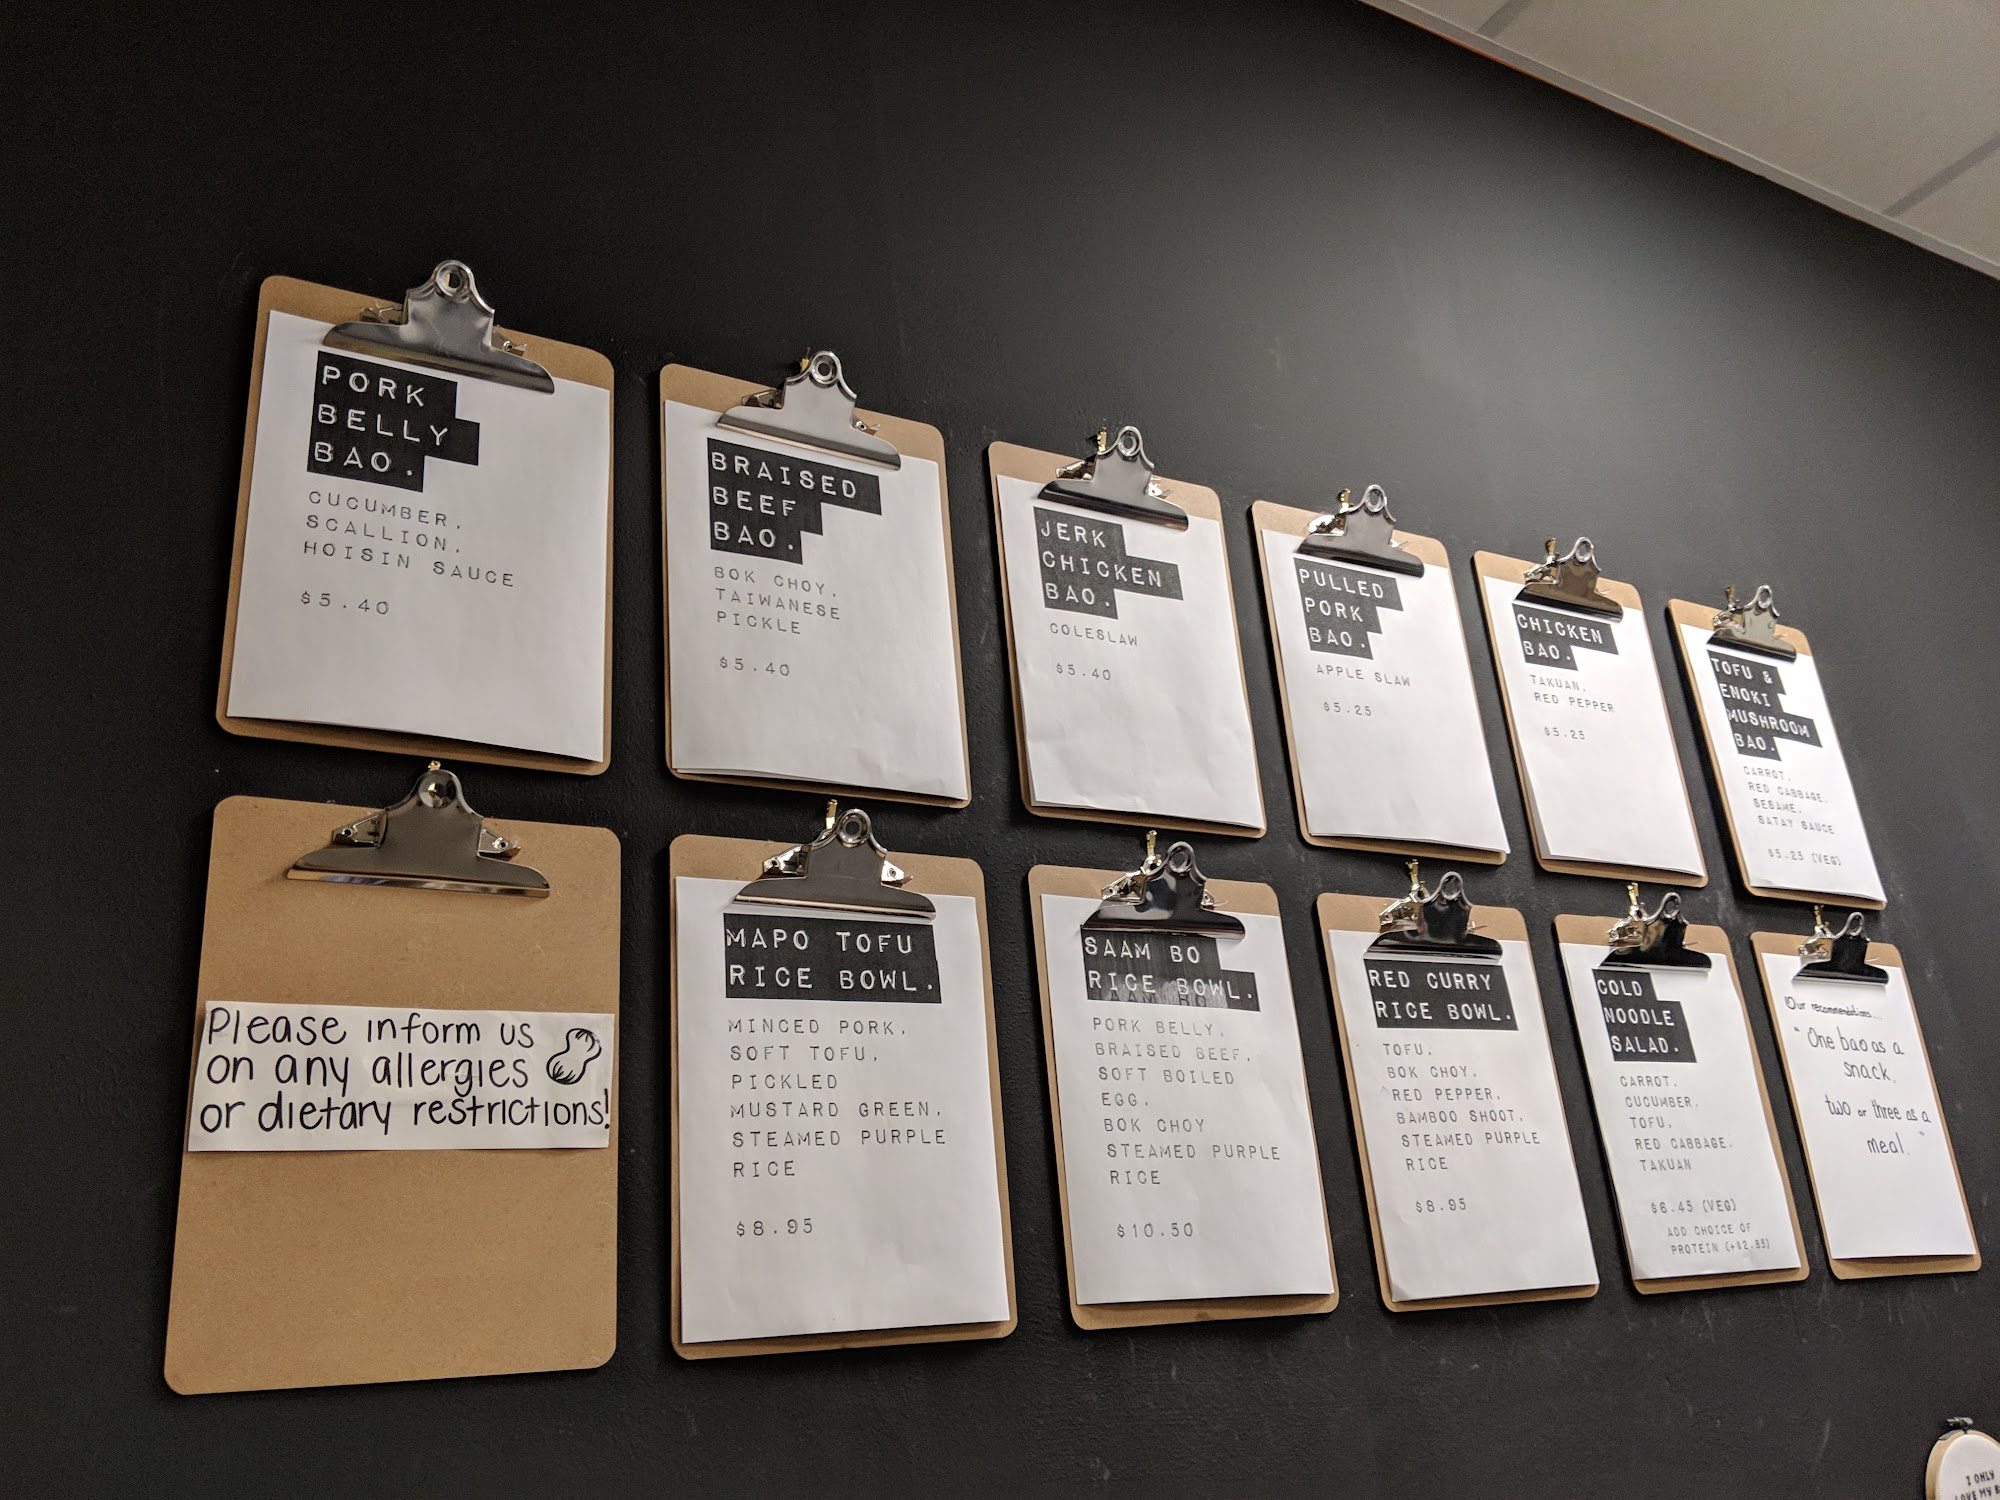 PORK
BELLY
BAO.
CUCUMBER,
SCALLION,
HOISIN SAUCE
$5.40
BRAISED
BEEF
BAO.
BOK CHOY,
TAIWANESE
PICKLE
$5.40
JERK
CHICKEN
BAO.
COLESLAW
$5.40
PULLED
PORK
BAO.
APPLE SLAW
$5.25
CHICKEN
BAO.
TAKUAN,
RED PEPPER
$5.25
TOFU &
ENOKI
MUSHROOM
BAO.
CARROT,
RED CABBAGE,
SESAME,
SATAY SAUCE
$5.25 (VEG)
Please inform us
on any allergies
or dietary restrictions!
MAPO TOFU
RICE BOWL.
MINCED PORK,
SOFT TOFU,
PICKLED
MUSTARD GREEN,
STEAMED PURPLE
RICE
$8.95
SAAM BO
RICE BOWL.
PORK BELLY,
BRAISED BEEF,
SOFT BOILED
EGG,
BOK CHOY
STEAMED PURPLE
RICE
$10.50
RED CURRY
RICE BOWL.
TOFU,
BOK CHOY,
RED PEPPER,
BAMBOO SHOOT,
STEAMED PURPLE
RICE
$8.95
COLD
NOODLE
SALAD.
CARROT,
CUCUMBER,
TOFU,
RED CABBAGE,
TAKUAN
$6.45 (VEG)
ADD CHOICE OF
PROTEIN (+$2.85)
Our recommendations...
"One bao as a
snack,
two or three as a
meal."
I ONLY
LOVE MY